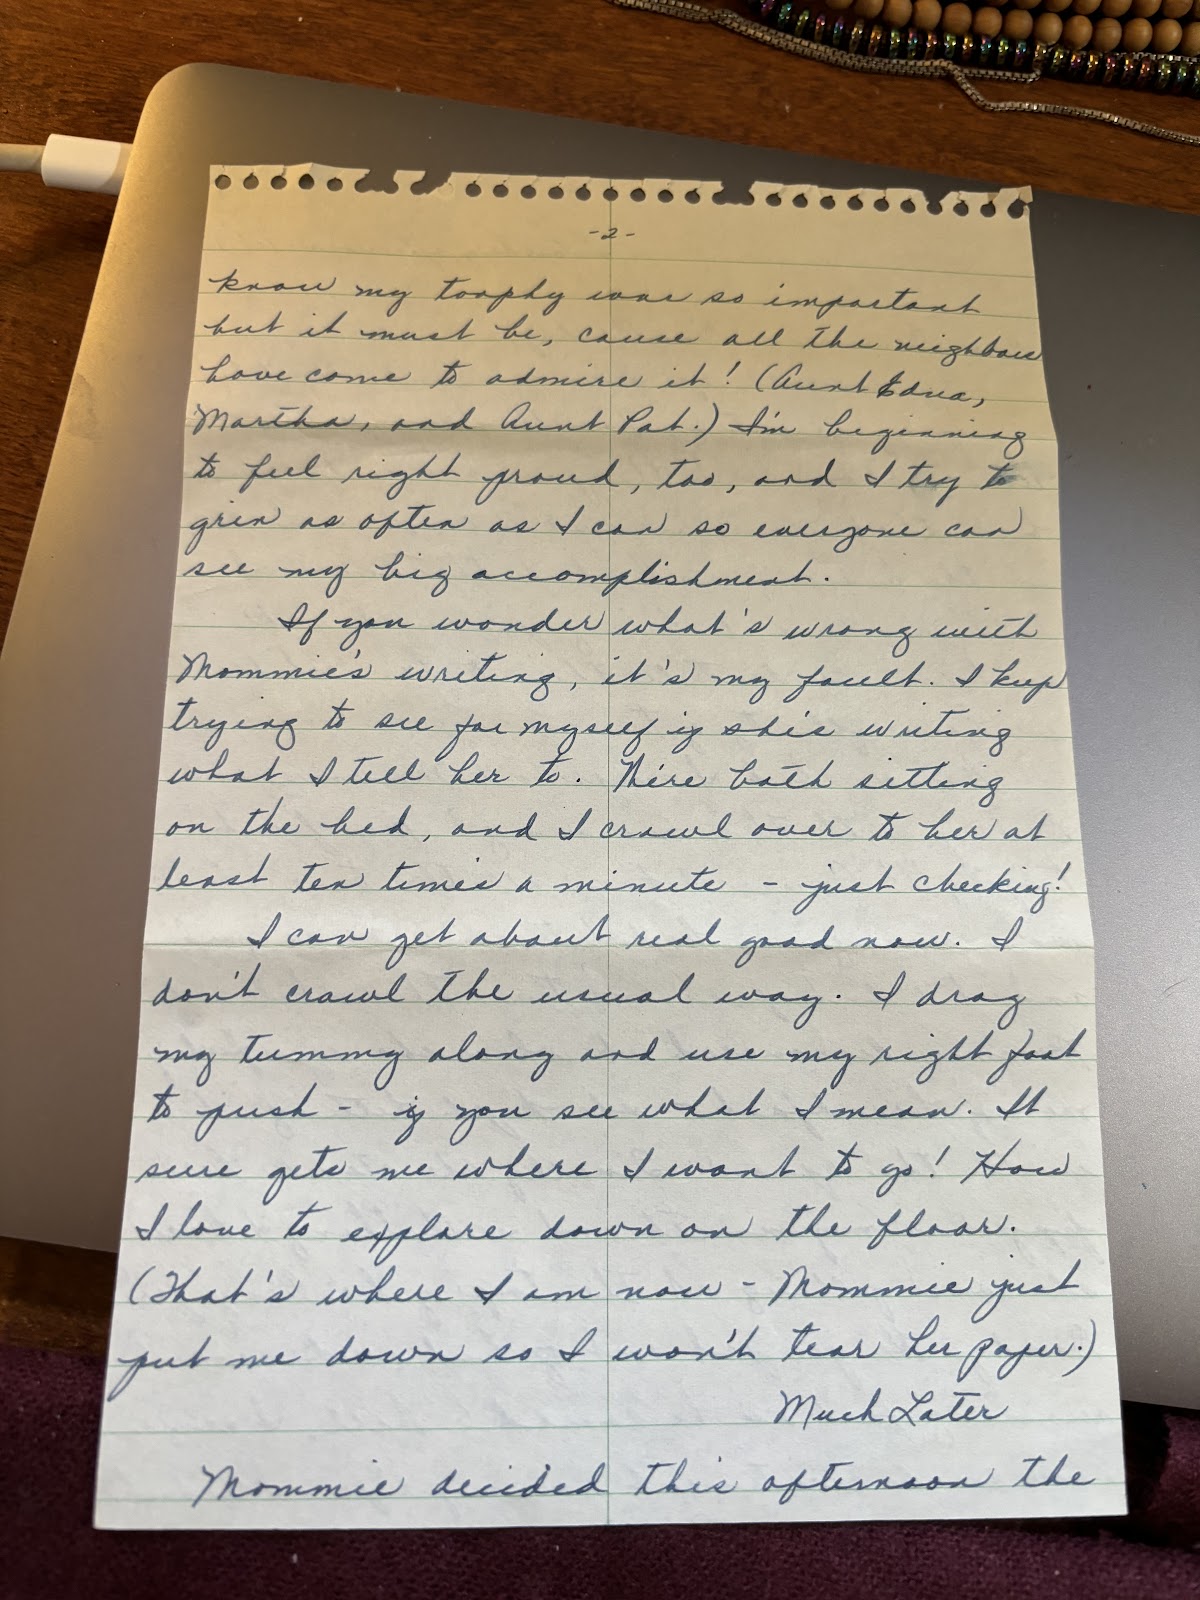 -2-
know my toophy was so important
but it must be, cause all the neighbors
have come to admire it! (Aunt Edna,
Martha, and Aunt Pat.) I'm beginning
to feel right proud, too, and I try to
grin as often as I can so everyone can
see my big accomplishment.
If you wonder what's wrong with
Mommie's writing, it's my fault. I keep
trying to see for myself if she's writing
what I tell her to. We're both sitting
on the bed, and I crawl over to her at
least ten times a minute - just checking!
I can get about real good now. I
don't crawl the usual way. I drag
my tummy along and use my right foot
to push - if you see what I mean. It
sure gets me where I want to go! How
I love to explore down on the floor.
(That's where I am now - Mommie just
put me down so I won't tear her paper.)
Much Later
Mommie decided this afternoon the